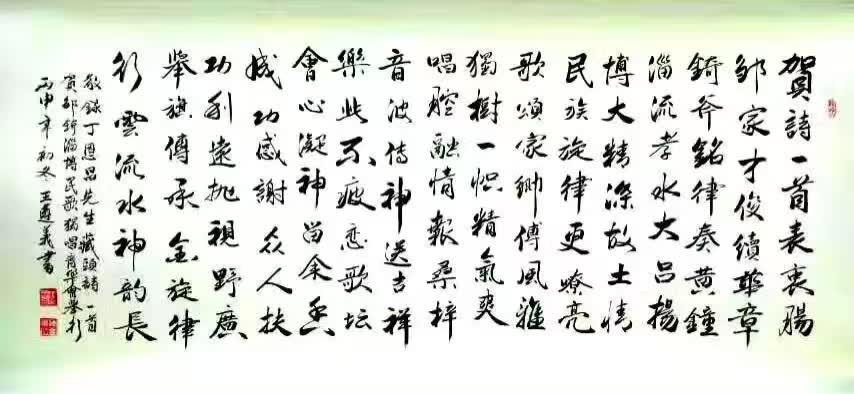 賀詩一首表衷腸
邹家才俊續華章
錡斧銘律奏黃鐘
淄流孝水大吕揚
博大精深故土情
民族旋律更嘹亮
歌頌家鄉傳風雅
獨樹一帜精氣爽
唱腔融情報桑梓
音波传神送吉祥
樂此不疲恋歌坛
會心凝神留余香
成功感謝众人扶
功利遠抛視野廣
舉旗傳承金旋律
行雲流水神韵長
敬錄丁恩昌先生藏頭詩一首
賀邹錡淄博民歌獨唱音樂會舉行
丙申年初冬 王遵義書